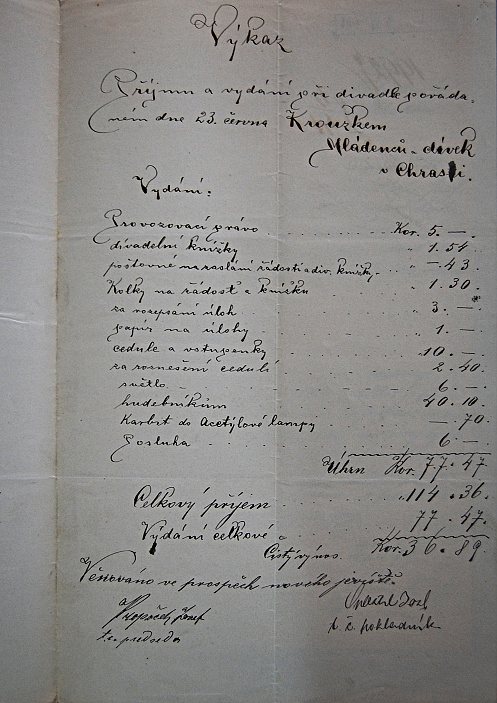 Výkaz
Příjmu a vydání při divadle pořáda-
ném dne 23. června Kroužkem
Mládenců a dívek
v Chrasti.
Vydání:
Provozovací právo Kor. 5. —
divadelní knížky " 1.54
poštovné na zaslání žádosti a div. knížky " —.43
Kolky na žádost a knížku " 1.30
za rozepsání úloh " 3. —
papír na úlohy " 1. —
cedule a vstupenky 10. —
za roznešení cedulí 2.40
světlo 6. —
hudebníkům 40.10
Karbit do Acetylové lampy —.70
Posluha 6 —
Úhrn Kor. 77.47
Celkový příjem " 114.36
Vydání celkové 77.47.
Čistý výnos Kor. 36.89
Věnováno ve prospěch nového jeviště.
Josef
t. č. předseda
t. č. pokladník